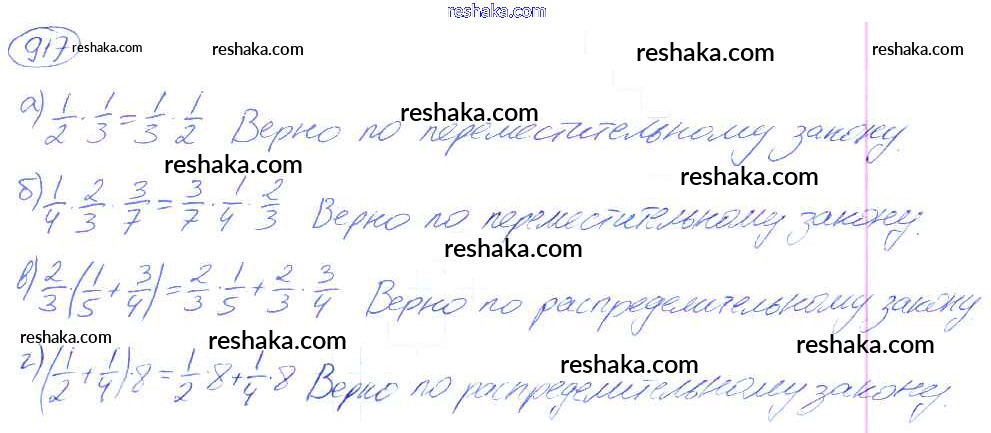 reshaka.com
917 reshaka.com reshaka.com reshaka.com reshaka.com
а) 1/2 · 1/3 = 1/3 · 1/2 Верно по переместительному закону.
reshaka.com
reshaka.com reshaka.com
б) 1/4 · 2/3 · 3/7 = 3/7 · 1/4 · 2/3 Верно по переместительному закону.
reshaka.com
в) 2/3 · (1/5 + 3/4) = 2/3 · 1/5 + 2/3 · 3/4 Верно по распределительному закону
reshaka.com reshaka.com reshaka.com
г) (1/2 + 1/4) · 8 = 1/2 · 8 + 1/4 · 8 Верно по распределительному закону.
reshaka.com